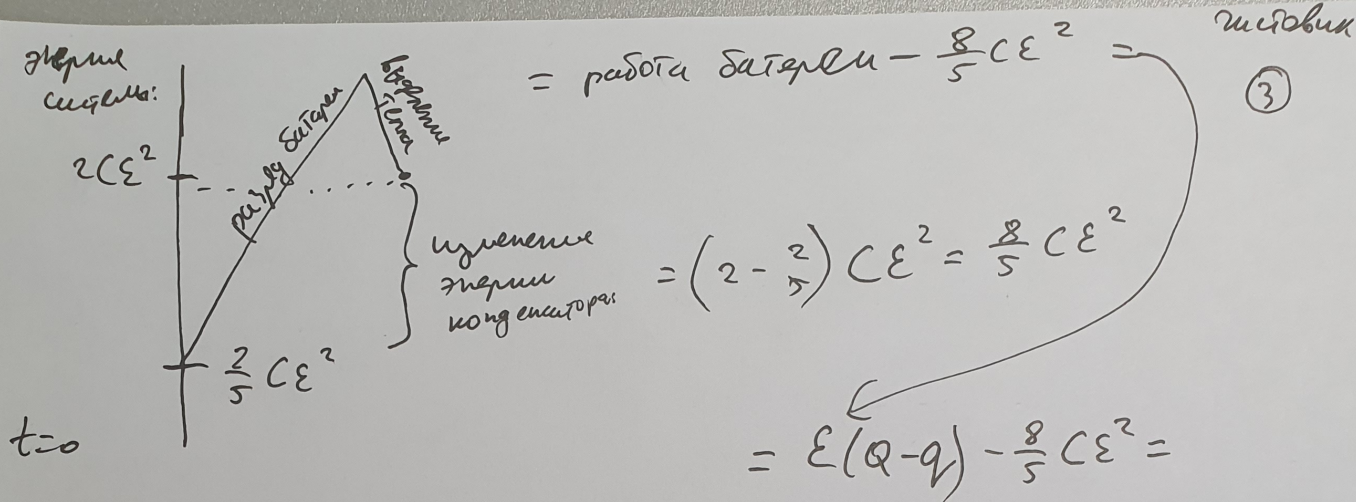 чистовик
③
энергия
системы:
2Cε²
разряд батареи
выделение
тепла
= работа батареи - 8/5 Cε² =
изменение
энергии
конденсатора:
= (2 - 2/5) Cε² = 8/5 Cε²
2/5 Cε²
t=0
= ε(Q-q) - 8/5 Cε² =